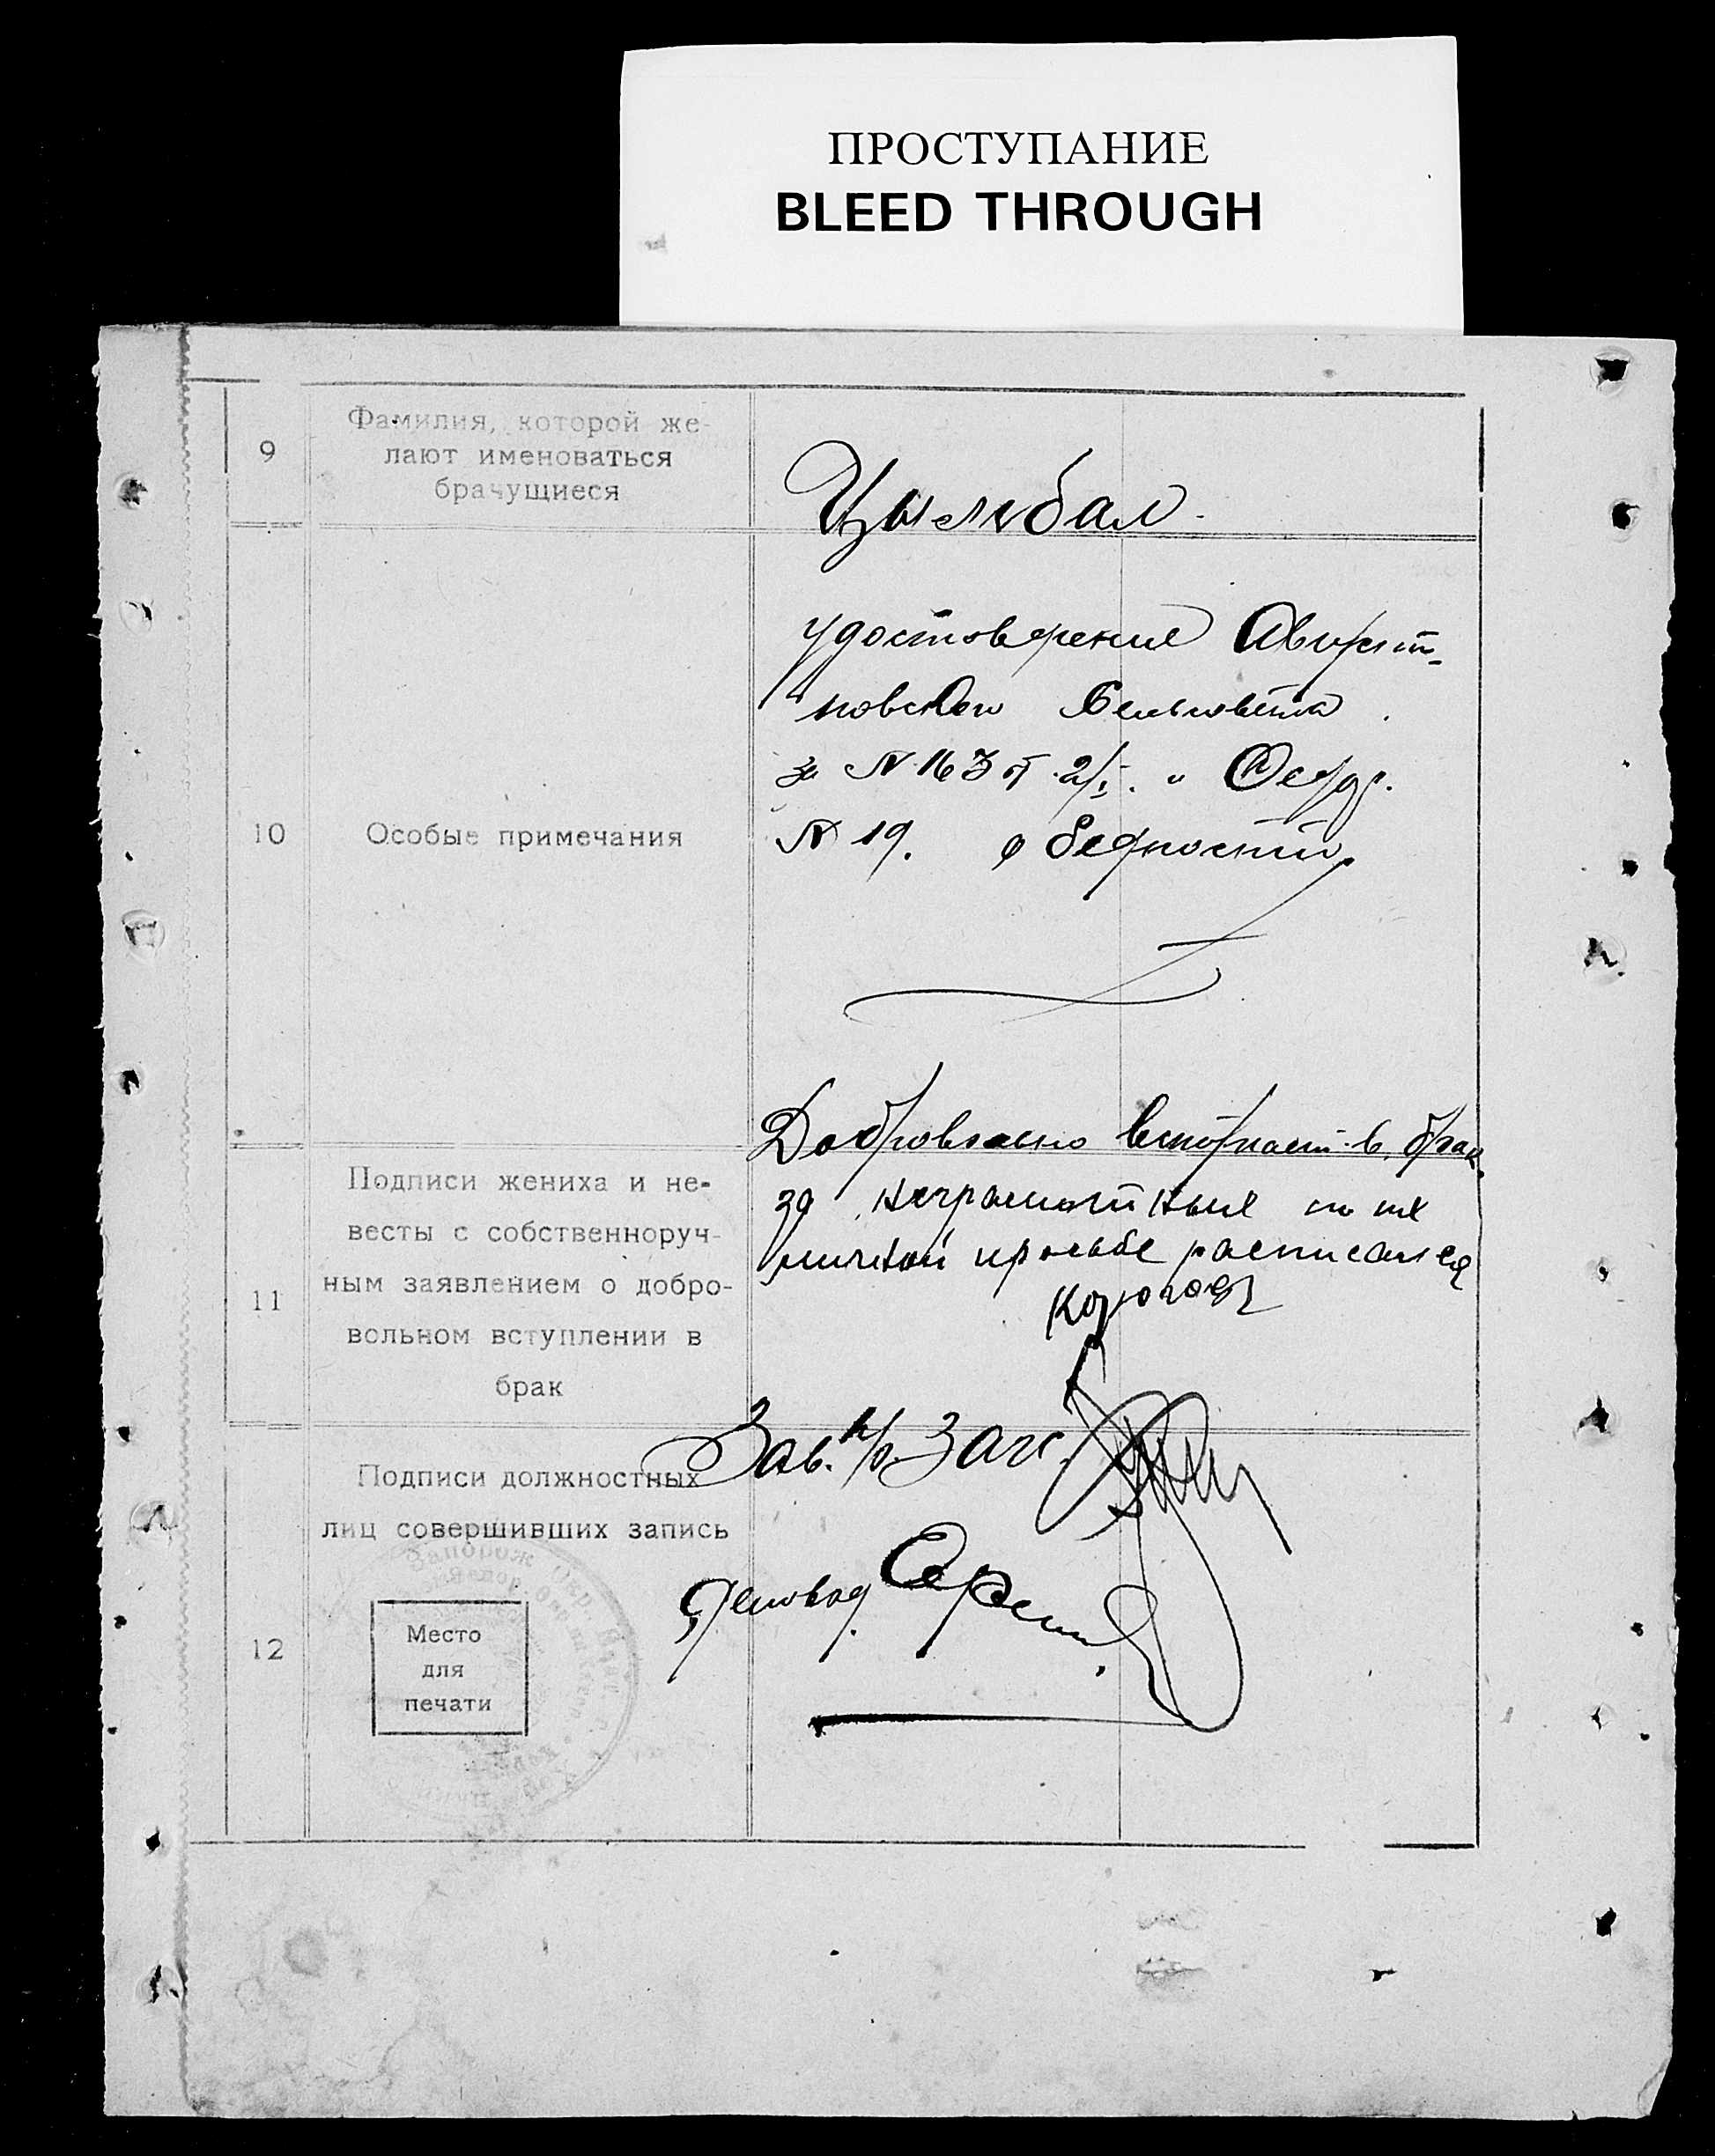 ПРОСТУПАНИЕ
BLEED THROUGH
9
Фамилия, которой же-
лают именоваться
брачущиеся
Цымбал
10
Особые примечания
удостоверение
Сельсовета
за № 163 от 2/I. и
№ 19. о бедности
11
Подписи жениха и не-
весты с собственноруч-
ным заявлением о добро-
вольном вступлении в
брак
Добровольно вступают в брак
за неграмотные по их
личной просьбе расписался
12
Подписи должностных
лиц совершивших запись
Место
для
печати
Зав. п/о. Загс.
Деловод.